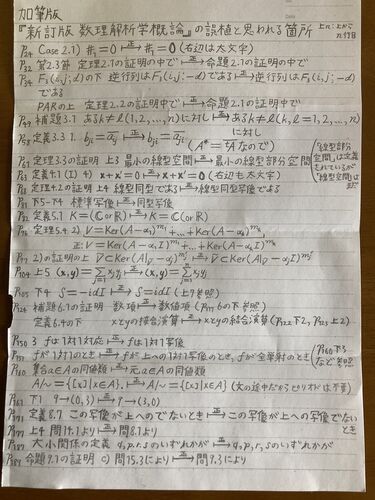 加筆版
『新訂版 数理解析学概論』の誤植と思われる箇所
上n:上からn行目
P24 Case 2.1) 𝕩1=0 →正 𝕩1=𝟎 (右辺は太文字)
P32 第2.3節 定理2.1の証明中で →正 命題2.1の証明中で
P34 F1(i,j;d)の下 逆行列はF1(i,j;-d)である →正 逆行列はF1(i,j;-d)
である
PARの上 定理2.2の証明中で →正 命題2.1の証明中で
補題3.1 ある k≠l(1,2,…,n)に対し →正 ある k≠l(k,l=1,2,…,n)
に対し
P58 定義3.3 1. bji=aij →正 bji=āij
(A*=ᵗĀなので)
P61 定理3.3の証明 上3 最小の線型空間 →正 最小の線型部分空間
(「線型部分空間」は定義されているが「線型空間」は
P63 定義4.1(I) 4) x+x'=0 →正 x+x'=𝟎 (右辺も太文字)
定理4.2の証明 上4 線型同型である →正 線型同型写像である
下5〜下4 標準写像 →正 同型写像
P72 定義5.1 K=(ℂ or ℝ) →正 K=ℂ(or ℝ)
定理5.4 2) V=Ker(A-α1)^m1+…+Ker(A-αi)^mi
正:V=Ker(A-α1I)^m1+…+Ker(A-αiI)^mi
2)の証明の上 Ṽ⊂Ker(A|Ṽ-αj)^mj' →正 Ṽ⊂Ker(A|Ṽ-αjI)^mj'
P104 上5 (x,y)=Σxjyj →正 (x,y)=Σxjȳj
P105 下4 S=-idI →正 S=idI (上9参照)
補題6.1の証明 数項 →正 数値項 (P116の下参照)
定義6.4の下 xとyの接合演算 →正 xとyの結合演算 (P122下2, P123上2)
P150 3 fは1対1対応 →正 fは1対1写像
fが1対1のとき →正 fが上への1対1写像のとき, fが全単射のとき
P160 集合a∈Aの同値類 →正 元a∈Aの同値類
A/~={[x]|x∈A}. →正 A/~={[x]|x∈A} (文の途中だからピリオドは不要)
P167 下1 9→(0,3) →正 9→(3,0)
P171 定義8.7 この写像が上へのでないとき →正 この写像が上への写像でない
とき
P177 上4 問14.1より →正 問8.1より
大小関係の定義 q,p.r,sのいずれかが →正 q,p,r,sのいずれかが
命題9.1の証明 c) 問15.3により →正 問9.3により